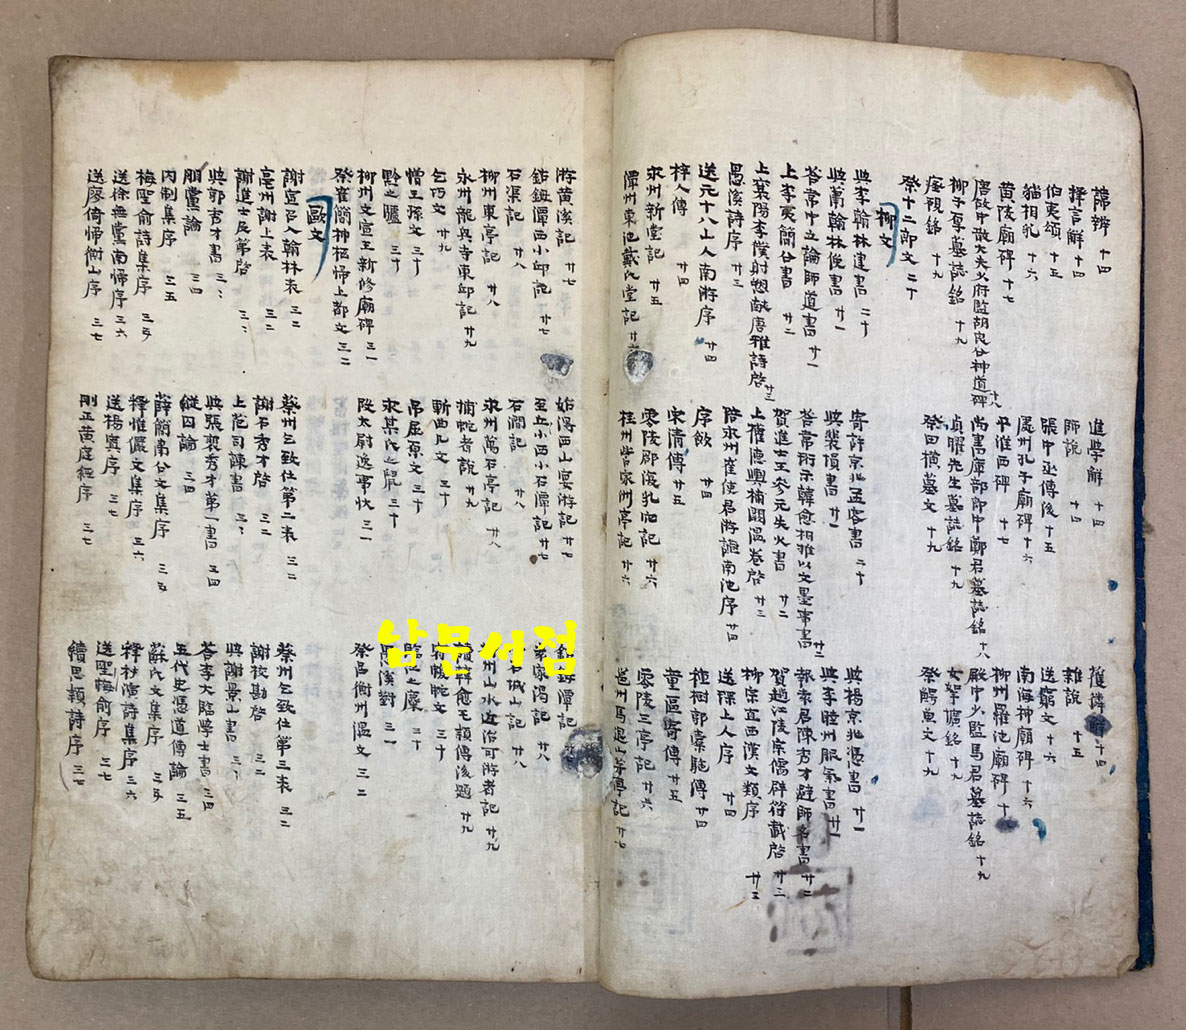 諱辨 十四 進學解 十四 獲麟解 十四
擇言解 十四 師說 十四 雜說 十五
伯夷頌 十五 張中丞傳後 十五 送窮文 十六
貓相乳 十六 處州孔子廟碑 十六 南海神廟碑 十六
黄陵廟碑 十七 平淮西碑 十七 柳州羅池廟碑 十
唐故中散大夫少府監胡良公神道碑 十八 尚書庫部郎中鄭君墓誌銘 十八 殿中少監馬君墓誌銘 十九
柳子厚墓誌銘 十九 貞曜先生墓誌銘 十九 女挐壙銘 十九
瘞硯銘 十九 祭田橫墓文 十九 祭鱷魚文 十九
祭十二郎文 二十
柳文
與李翰林建書 二十 寄許京兆孟容書 二十 與楊京兆憑書 廿一
與蕭翰林俛書 廿一 與裴塤書 廿一 與李睦州服氣書 廿一
答韋中立論師道書 廿一 答韋珩示韓愈相推以文墨事書 廿二 報袁君陳秀才避師名書 廿二
上李夷簡公書 廿二 賀進士王參元失火書 廿二 賀趙江陵宗儒辟符載啓 廿三
上襄陽李僕射愬獻唐雅詩啓 廿三 上權德輿補闕溫卷啓 廿三 柳宗直西漢文類序 廿三
愚溪詩序 廿三 陪永州崔使君游讌南池序 廿四 送琛上人序 廿四
送元十八山人南游序 廿四 序飮 廿四 種樹郭橐駝傳 廿四
梓人傳 廿四 宋清傳 廿五 童區寄傳 廿五
永州新堂記 廿五 零陵郡復乳穴記 廿六 零陵三亭記 廿六
潭州東池戴氏堂記 廿六 桂州訾家洲亭記 廿六 邕州馬退山茅亭記 廿七
游黄溪記 廿七 始得西山宴游記 廿七 鈷鉧潭記
鈷鉧潭西小邱記 廿七 至小邱西小石潭記 廿七 袁家渴記 廿八
石渠記 廿八 石澗記 廿八 小石城山記 廿八
柳州東亭記 廿八 永州萬石亭記 廿八 柳州山水近治可游者記 廿九
永州龍興寺東邱記 廿九 捕蛇者說 廿九 讀韓愈毛穎傳後題 廿九
乞巧文 廿九 斬曲几文 三十 宥蝮蛇文 三十
憎王孫文 三十 弔屈原文 三十 臨江之麋 三十
黔之驢 三十 永某氏之鼠 三十 愚溪對 三一
柳州文宣王新修廟碑 三一 段太尉逸事狀 三一 祭呂衡州溫文 三二
祭崔簡神柩歸上都文 三二
歐文
謝宣召入翰林表 三二 蔡州乞致仕第二表 三二 蔡州乞致仕第三表 三二
亳州謝上表 三三 謝石秀才啓 三三 謝校勘啓 三三
謝進士及第啓 三三 上范司諫書 三三 與謝景山書 三三
與郭秀才書 三三 與張秀才第一書 三四 答李大臨學士書 三四
朋黨論 三四 縱囚論 三四 五代史馮道傳論 三五
內制集序 三五 薛簡肅公文集序 三五 蘇氏文集序 三五
梅聖兪詩集序 三五 釋惟儼文集序 三六 釋秘演詩集序 三六
送徐無黨南歸序 三六 送楊寘序 三七 送梅聖兪序 三七
送廖倚歸衡山序 三七 刪正黄庭經序 三七 續思穎詩序 三七
남문서점